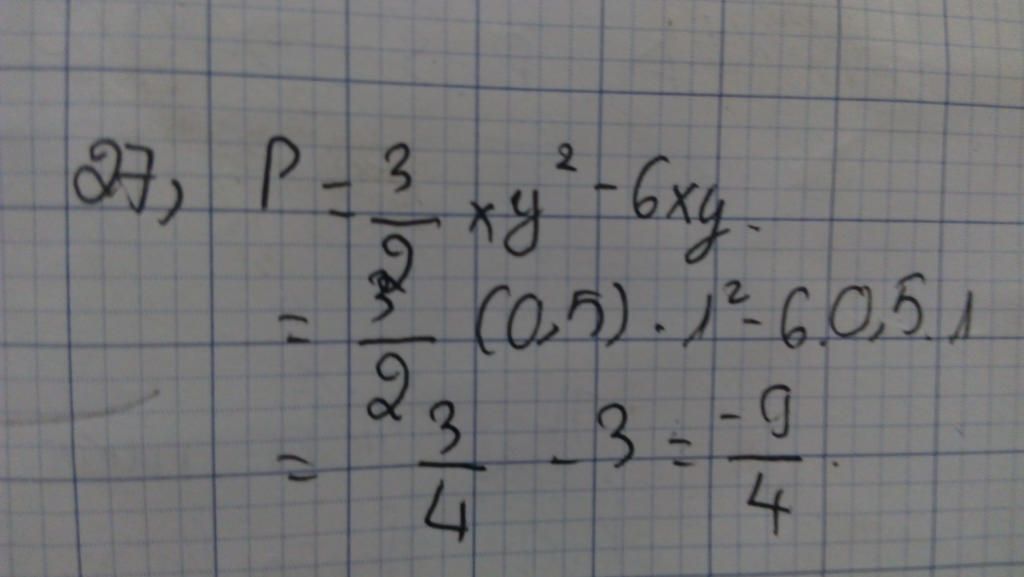 27, P = 3/2 xy² - 6xy.
= 3/2 (0,5) . 1² - 6.0,5.1
= 3/4 - 3 = -9/4.